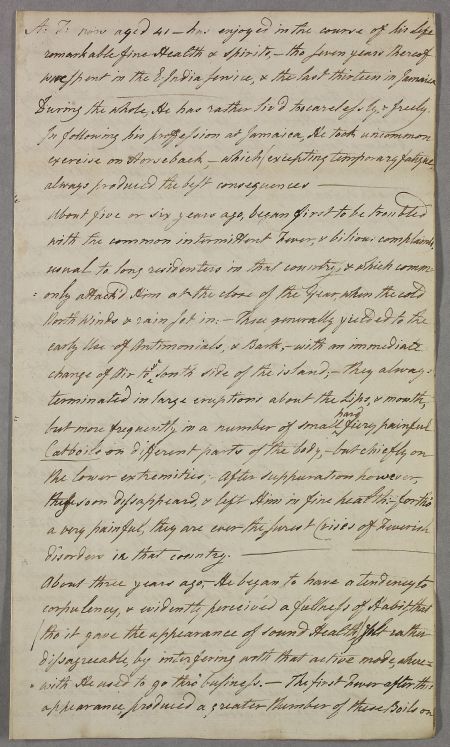 A: F: now aged 41 – has enjoyed in the course of his Life
remarkable fine Health & spirits, – the seven years thereof
were spent in the E India service, & the last thirteen in Jamaica
During the whole, He has rather liv'd too carelessly & freely.
In following his proffession at Jamaica, He took uncommon
exercise on Horseback, – which (excepting temporary fatigue
always produced the best consequences
About five or six years ago, began first to be troubled
with the common intermittent Fever, & bilious complaints
usual to long residenters in that country, & which comm-
only attack'd Him at the close of the Year, when the cold
North Winds & rain set in: – These generally yielded to the
early Use of Antimonials, & Bark, – with an immediate
change of Air to ye South side of the island; – they always
terminated in large eruptions about the Lips, & mouth,
but more frequently in a number of small hard fiery painful
Catboils on different parts of the body, – but chiefly on
the lower extremities; After suppuration however,
these soon dissappeard, & left Him in fine health; – for tho'
a very painful, they are ever the surest Crises of Feverish
disorders in that country.
About three years ago, He began to have a tendency to
corpulency, & evidently perceived a fullness of Habit, that
(tho it gave the appearance of sound Health) felt rather
dissagreeable, by interfering with that active mode, where-
with He used to go thro' business. – The first Fever after this
appearance produced a greater Number of these Boils on